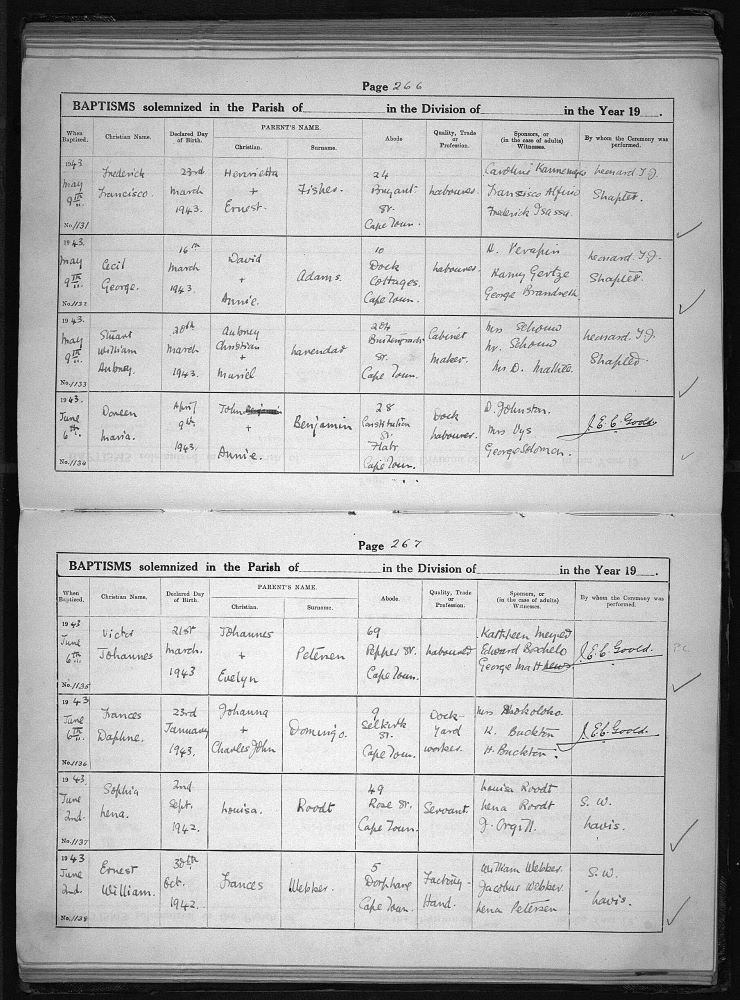 Page 266
BAPTISMS solemnized in the Parish of in the Division of in the Year 19 .
When Baptized. Christian Name. Declared Day of Birth. PARENT'S NAME. Christian. Surname. Abode Quality, Trade or Profession. Sponsors, or (in the case of adults) Witnesses. By whom the Ceremony was performed.
1943. May 9th No. 1131
Frederick Francisco.
23rd March 1943.
Henrietta + Ernest.
Fisher.
24 Bryant St. Cape Town.
Labourer.
Caroline Kannemeyer Francisco Alfino Frederick Isassa.
Leonard T. J. Shapley.
1943. May 9th No. 1132
Cecil George.
16th March 1943.
David + Annie.
Adams.
10 Dock Cottages. Cape Town.
Labourer.
H. Verapin George Brandreth.
Leonard T. J. Shapley.
1943. May 9th No. 1133
Stuart William Aubrey.
20th March 1943.
Aubrey Christian + Muriel
Lavendar
204 Buitengracht St. Cape Town.
Cabinet Maker.
Mrs Schouw Mr. Schouw Mrs D. Mathee.
Leonard. T. J. Shapley.
1943. June 6th. No. 1134
Doreen Maria.
April 9th 1943.
John + Annie.
Benjamin
28 Constitution St. Flats Cape Town.
Dock Labourer.
D. Johnston. Mrs Uys George Solomon.
J. E. C. Goold.
Page 267
BAPTISMS solemnized in the Parish of in the Division of in the Year 19 .
When Baptized. Christian Name. Declared Day of Birth. PARENT'S NAME. Christian. Surname. Abode. Quality, Trade or Profession. Sponsors, or (in the case of adults) Witnesses. By whom the Ceremony was performed.
1943 June 6th No. 1135
Victor Johannes
21st March. 1943
Johannes + Evelyn
Petersen
69 Pepper St. Cape Town.
Labourer
Kathleen Edward George Matthews
J. E. C. Goold.
P.C.
1943 June 6th No. 1136
Frances Daphne.
23rd January 1943.
Johanna + Charles John
Domingo.
9 Selkirk St. Cape Town.
Dock-Yard worker.
Mrs K. Buckton H. Buckton.
J. E. C. Goold.
1943. June 2nd. No. 1137
Sophia Lena.
2nd. Sept. 1942.
Louisa.
Roodt
49 Rose St. Cape Town.
Servant.
Louisa Roodt Lena Roodt J. Orgill.
S. W. Lavis.
1943 June 2nd. No. 1138
Ernest William.
30th Oct. 1942.
Frances
Webber.
5 Cape Town.
Factory-Hand.
William Webber. Jacobus Webber. Lena Petersen
S. W. Lavis.